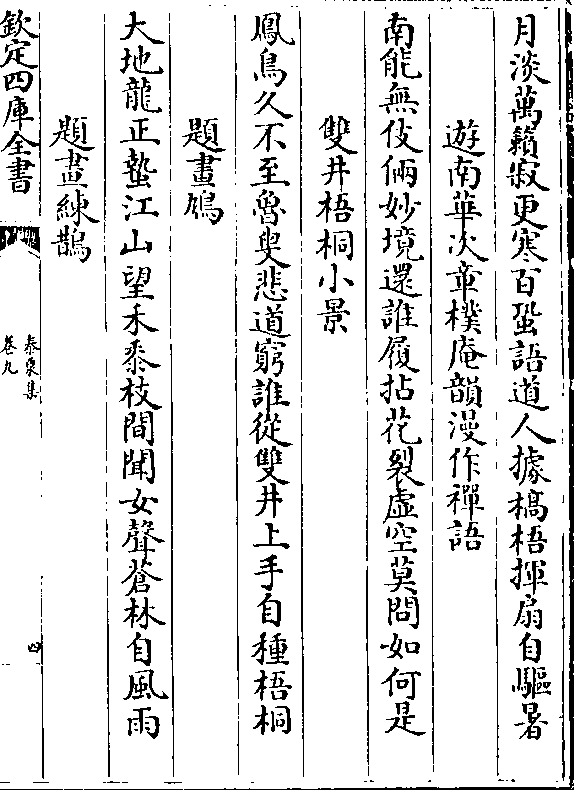 月淡萬籟寂更寒百蛩語道人據槁梧揮扇自驅暑
遊南華次章樸庵韻漫作禪語
南能無伎倆妙境還誰履拈花裂虛空莫問如何是
雙井梧桐小景
鳳鳥久不至魯叟悲道窮誰從雙井上手自種梧桐
題畫鳩
大地龍正蟄江山望禾黍枝間聞女聲蒼林自風雨
題畫練鵲
欽定四庫全書
泰泉集
卷九
四